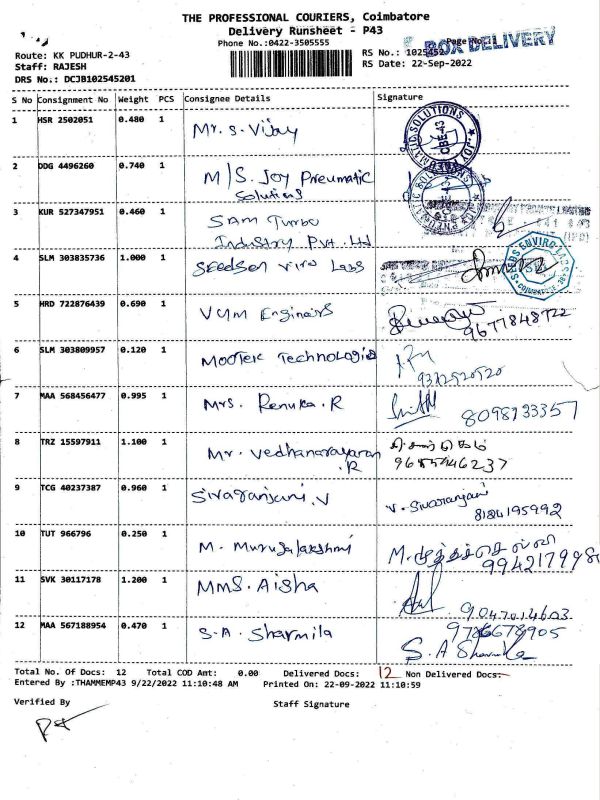 THE PROFESSIONAL COURIERS, Coimbatore
Delivery Runsheet - P43
Phone No.:0422-3505555
Page No.:1
BOX DELIVERY
Route: KK PUDHUR-2-43
RS No.: 1025452
Staff: RAJESH
RS Date: 22-Sep-2022
DRS No.: DCJB102545201
S No Consignment No Weight PCS Consignee Details Signature
1 HSR 2502051 0.480 1 Mr. S. Vijay
2 DDG 4496260 0.740 1 M/S. Joy Pneumatic
Solutions
3 KUR 527347951 0.460 1 SAM Turbo
Industry Pvt. Ltd
4 SLM 303835736 1.000 1 Seedsen viro Labs
5 HRD 722876439 0.690 1 VCM Engineers
9677848722
6 SLM 303809957 0.120 1 Mootek Technologies
9372520520
7 MAA 568456477 0.995 1 Mrs. Renuka. R
8098133357
8 TRZ 15597911 1.100 1 Mr. Vedhanarayanan
.R
9 TCG 40237387 0.960 1 Sivaranjani. V V. Sivaranjani
8124195992
10 TUT 966796 0.250 1 M. Murugalakshmi
11 SVK 30117178 1.200 1 MMS. Aisha
9047014603
12 MAA 567188954 0.470 1 S.A. Sharmila
S.A Sharmila
Total No. Of Docs: 12 Total COD Amt: 0.00 Delivered Docs: 12 Non Delivered Docs:
Entered By :THAMMEMP43 9/22/2022 11:10:48 AM Printed On: 22-09-2022 11:10:59
Verified By Staff Signature